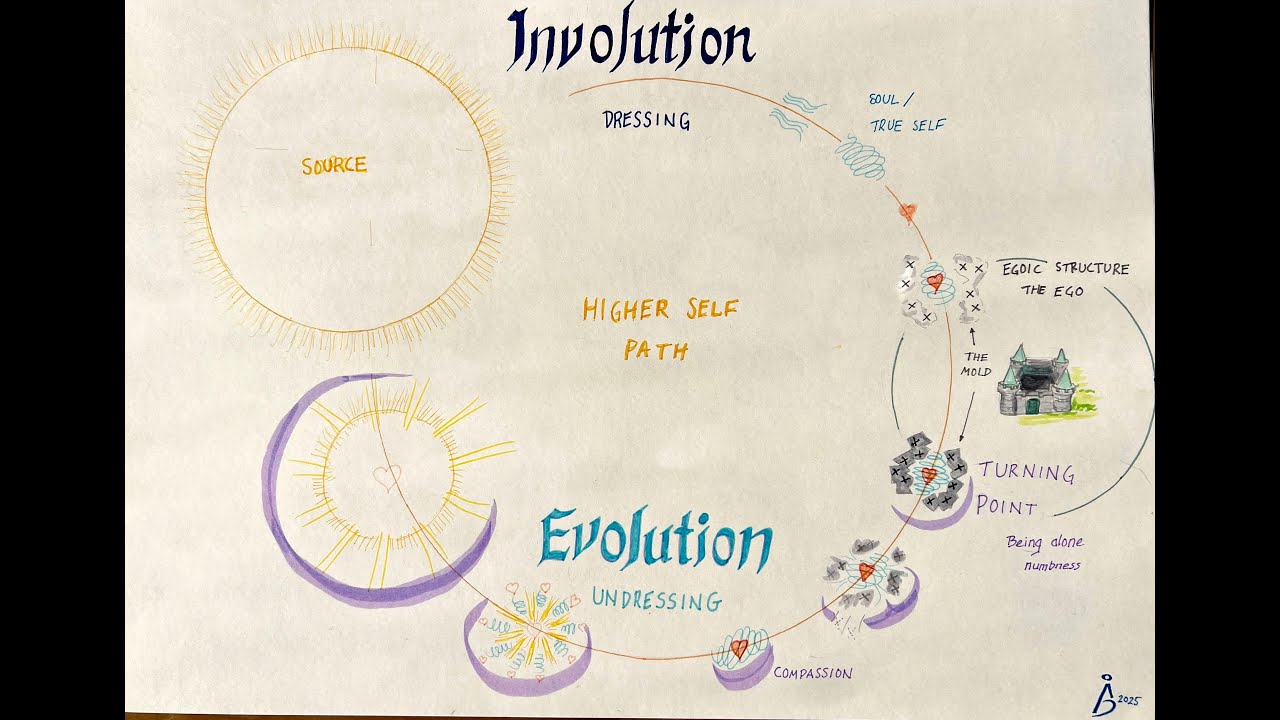 Involution
DRESSING
SOUL /
TRUE SELF
SOURCE
EGOIC STRUCTURE
THE EGO
HIGHER SELF
PATH
THE
MOLD
TURNING
POINT
Being alone
numbness
Evolution
UNDRESSING
COMPASSION
2025